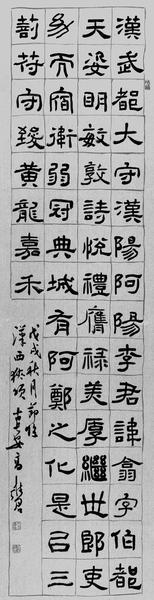 漢武都大守漢陽阿陽李君諱翕字伯都
天姿明敏敦詩悅禮膺祿美厚繼世郎吏
幼而宿衛弱冠典城有阿鄭之化是㠯三
剖苻守致黃龍嘉禾
戊戌秋月節臨
漢西狹頌